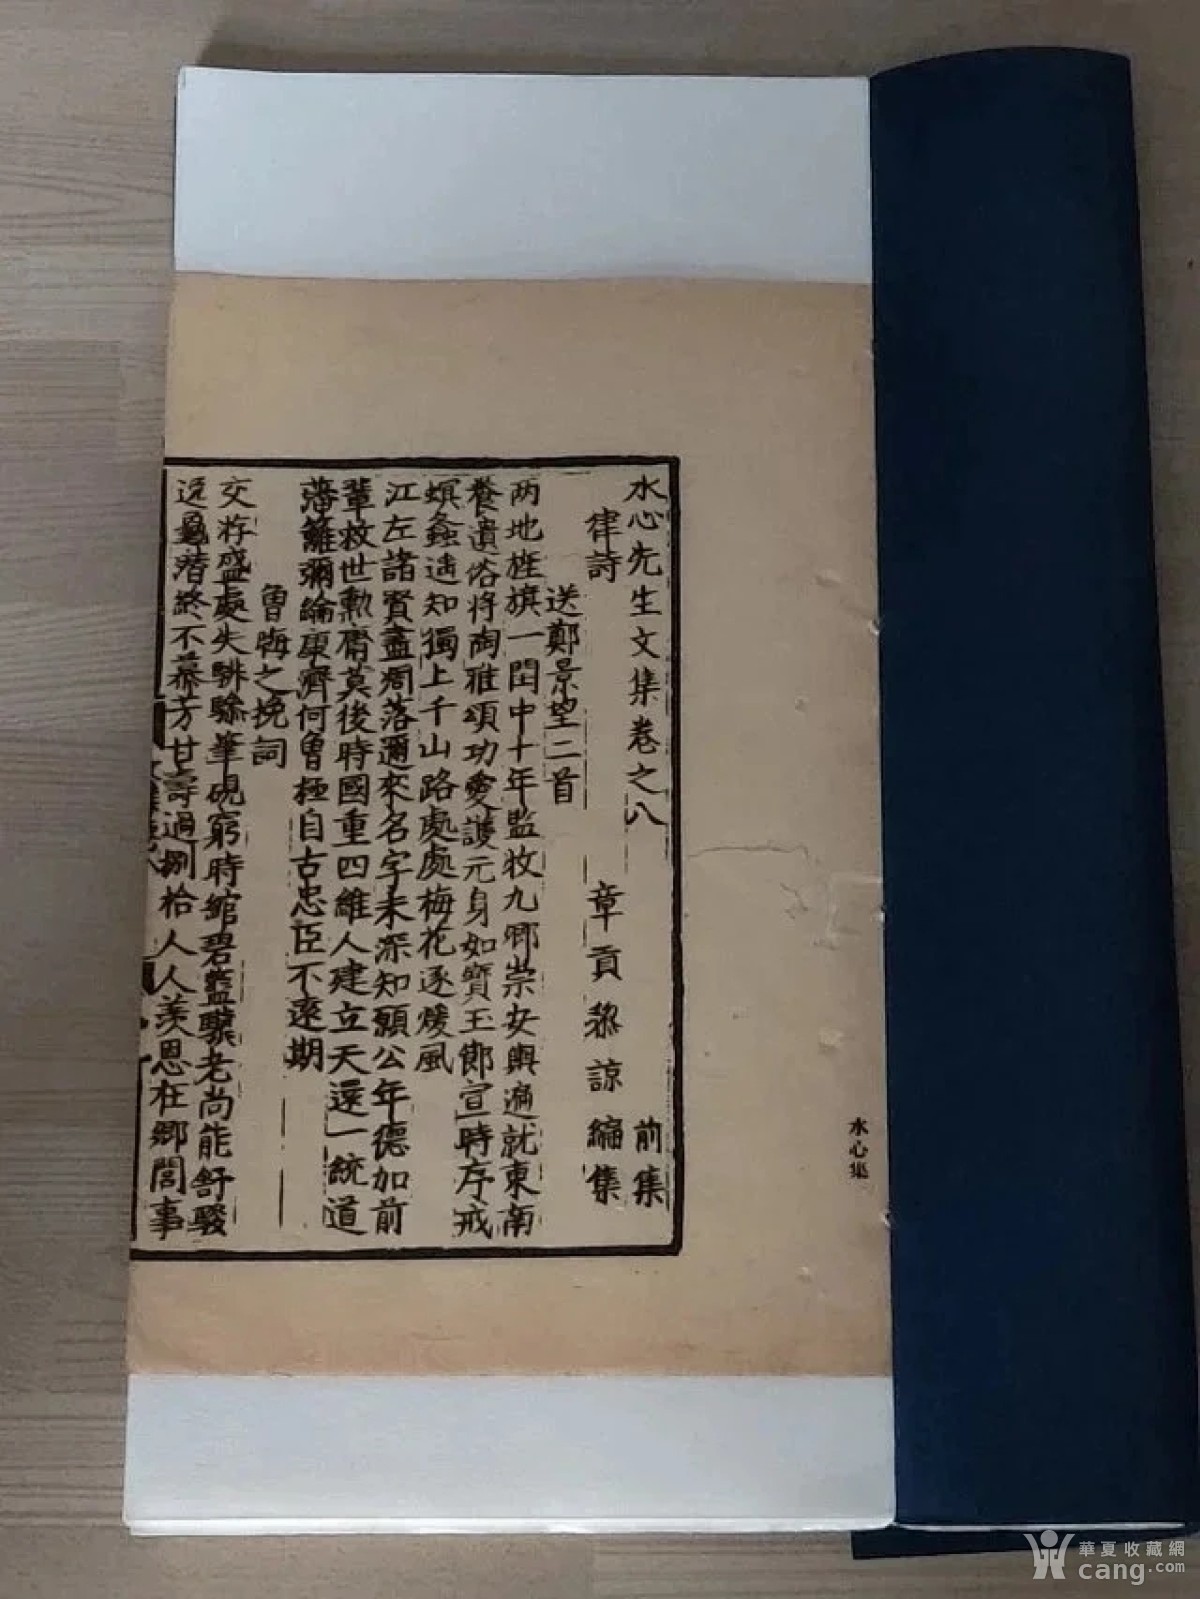 水心先生文集卷之八 前集
律詩 章貢黎諒編集
送鄭景望二首
两地旌旗一閏中十年監牧九卿崇安輿遍就東南
養遺俗將陶雅頌功愛護元身如寶玉節宣時序戒
螟螽遥知獨上千山路處處梅花逐煖風
江左諸賢盡凋落邇來名字未深知願公年德加前
輩救世勳庸莫後時國重四維人建立天還一統道
藩籬彌綸康濟何曾極自古忠臣不遠期
曾晦之挽詞
交游盛處失騑驂筆硯窮時綰碧藍驥老尚能舒駿
逸龜潛終不慕芳甘壽過捌拾人人羨恩在鄉閭事
水心集
華夏收藏網
cang.com